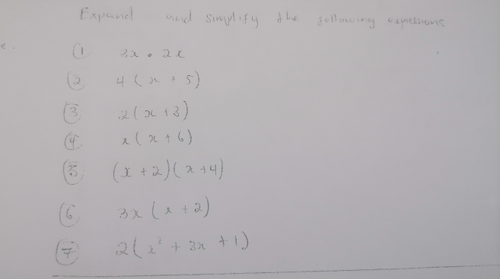 Expand and simplify the following expressions
① 3x • 2x
② 4(x + 5)
③ 2(x+3)
④ x(x+6)
⑤ (x+2)(x+4)
⑥ 3x(x+2)
⑦ 2(x² + 3x + 1)